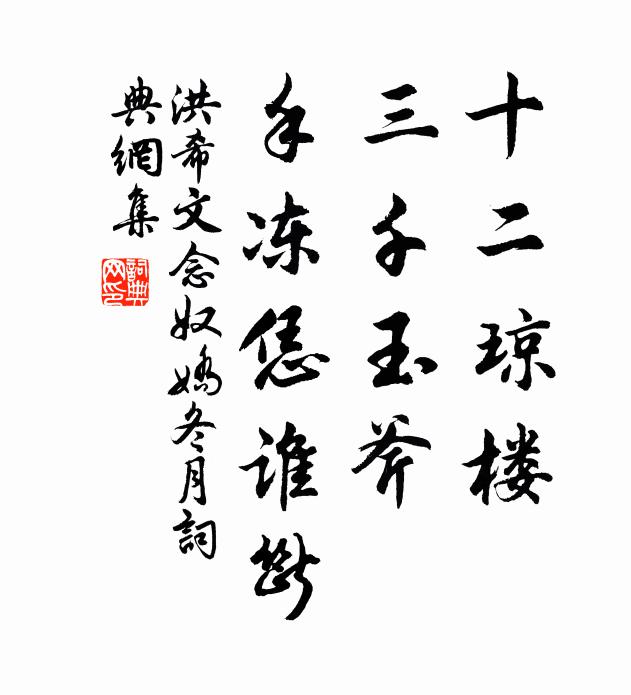 十二琼楼
三千玉斧
手冻凭谁斲
洪希文念奴娇冬月詞
典網集
詞典
网印